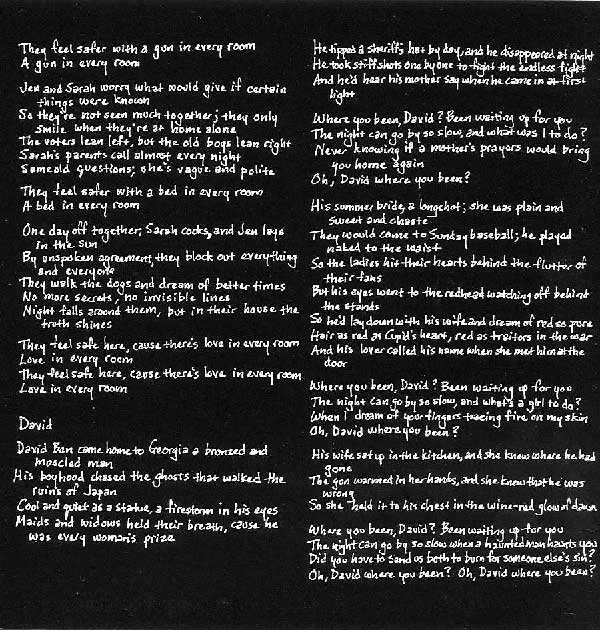 They feel safer with a gun in every room
A gun in every room
Jen and Sarah worry what would give if certain
things were known
So they're not seen much together; they only
smile when they're at home alone
The voters lean left, but the old boys lean right
Sarah's parents call almost every night
Same old questions; she's vague and polite
They feel safer with a bed in every room
A bed in every room
One day off together, Sarah cooks, and Jen lays
in the sun
By unspoken agreement, they block out everything
and everyone
They walk the dogs and dream of better times
No more secrets, no invisible lines
Night falls around them, but in their house the
truth shines
They feel safe here, cause there's love in every room
Love in every room
They feel safe here, cause there's love in every room
Love in every room
David
David Ban came home to Georgia a bronzed and
muscled man
His boyhood chased the ghosts that walked the
ruins of Japan
Cool and quiet as a statue, a firestorm in his eyes
Maids and widows held their breath, cause he
was every woman's prize
He tipped a sheriff's hat by day, and he disappeared at night
He took stiff shots one by one to fight the endless fight
And he'd hear his mother say when he came in at first
light
Where you been, David? Been waiting up for you
The night can go by so slow, and what was I to do?
Never knowing if a mother's prayers would bring
you home again
Oh, David where you been?
His summer bride, a longshot; she was plain and
sweet and chaste
They would come to Sunday baseball; he played
naked to the waist
So the ladies hit their hearts behind the flutter of
their fans
But his eyes went to the redhead watching off behind
the stands
So he'd lay down with his wife and dream of red so pure
Hair as red as Cupid's heart, red as traitors in the war
And his lover called his name when she met him at the
door
Where you been, David? Been waiting up for you
The night can go by so slow, and what's a girl to do?
When I dream of your fingers tracing fire on my skin
Oh, David where you been?
His wife sat up in the kitchen, and she knew where he had
gone
The gun warmed in her hands, and she knew that he was
wrong
So she held it to his chest in the wine-red glow of dawn
Where you been, David? Been waiting up for you
The night can go by so slow when a haunted man haunts you
Did you have to send us both to burn for someone else's sin?
Oh, David where you been? Oh, David where you been?